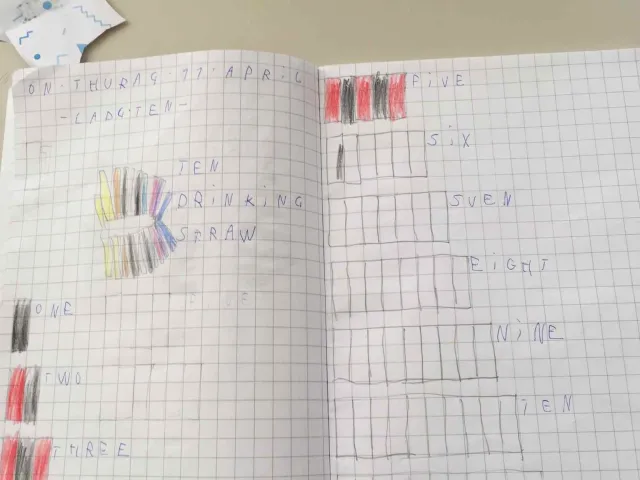 ON THURAG 11 APRiL
- LADGiTEN -
TEN
DRiNKiNG
STRAW
ONE
TWO
THREE
FiVE
SiX
SVEN
EiGHT
NiNE
TEN